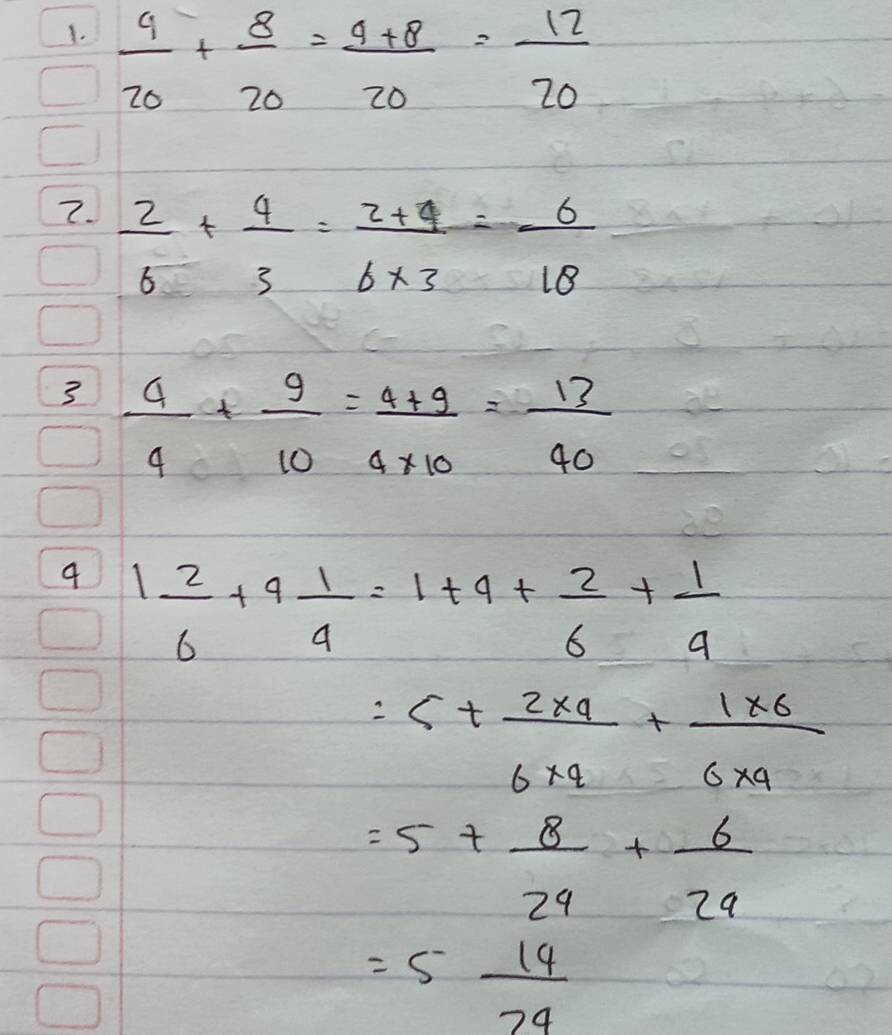 1. 4/20 + 8/20 = (4+8)/20 = 12/20
2. 2/6 + 4/3 = (2+4)/(6×3) = 6/18
3 4/4 + 9/10 = (4+9)/(4×10) = 13/40
4 1 2/6 + 4 1/4 = 1+4+ 2/6 + 1/4
= 5 + (2×4)/(6×4) + (1×6)/(6×4)
= 5 + 8/24 + 6/24
= 5 14/24